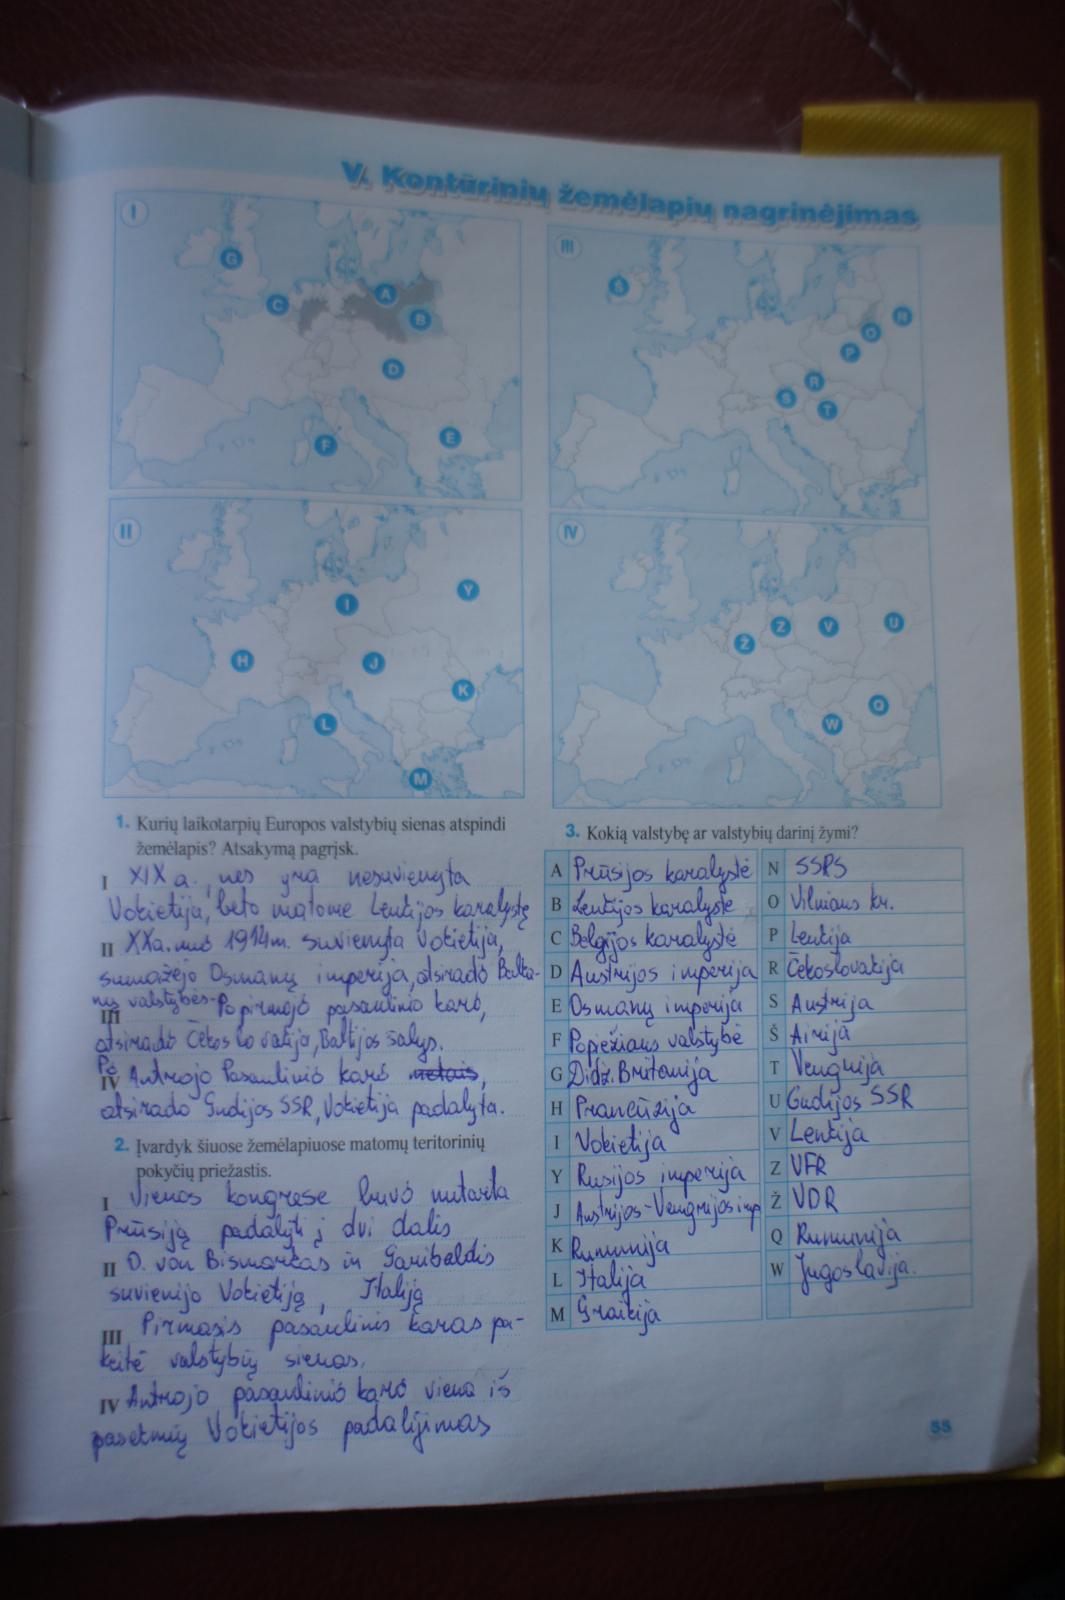 V. Kontūrinių žemėlapių nagrinėjimas
I
G
C
A
B
D
E
F
II
I
Y
H
J
K
L
M
III
Š
N
O
P
R
S
T
IV
Ž
Z
V
U
Q
W
1. Kurių laikotarpių Europos valstybių sienas atspindi
žemėlapis? Atsakymą pagrįsk.
I XIX a., nes yra nesuvienyta
Vokietija, beto matome Lenkijos karalystę
II XXa. nuo 1914m. suvienyta Vokietija,
sumažėjo Osmanų imperija, atsirado Balka-
nų valstybės.
III Po pirmojo pasaulinio karo,
atsirado Čekoslovakija, Baltijos šalys.
IV Po Antrojo Pasaulinio karo metais,
atsirado Gudijos SSR, Vokietija padalyta.
2. Įvardyk šiuose žemėlapiuose matomų teritorinių
pokyčių priežastis.
I Vienos kongrese buvo nutarta
Prūsiją padalyti į dvi dalis
II O. von Bismarkas ir Garibaldis
suvienijo Vokietiją, Italiją
III Pirmasis pasaulinis karas pa-
keitė valstybių sienas.
IV Antrojo pasaulinio karo viena iš
pasekmių Vokietijos padalijimas
3. Kokią valstybę ar valstybių darinį žymi?
A Prūsijos karalystė
B Lenkijos karalystė
C Belgijos karalystė
D Austrijos imperija
E Osmanų imperija
F Popiežiaus valstybė
G Didž. Britanija
H Prancūzija
I Vokietija
Y Rusijos imperija
J Austrijos-Vengrijos imp
K Rumunija
L Italija
M Graikija
N SSRS
O Vilniaus kr.
P Lenkija
R Čekoslovakija
S Austrija
Š Airija
T Vengrija
U Gudijos SSR
V Lenkija
Z VFR
Ž VDR
Q Rumunija
W Jugoslavija.
55